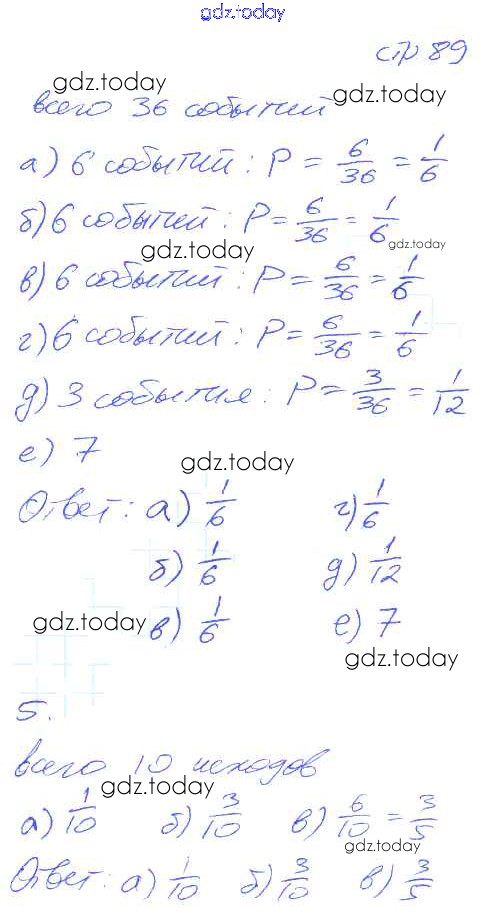 gdz.today
стр 89
gdz.today
gdz.today
всего 36 событий
а) 6 событий : P = 6/36 = 1/6
б) 6 событий : P = 6/36 = 1/6
gdz.today
gdz.today
в) 6 событий : P = 6/36 = 1/6
г) 6 событий : P = 6/36 = 1/6
д) 3 события : P = 3/36 = 1/12
е) 7
gdz.today
Ответ : а) 1/6 г) 1/6
б) 1/6 д) 1/12
gdz.today
в) 1/6 е) 7
gdz.today
5.
всего 10 исходов
gdz.today
а) 1/10 б) 3/10 в) 6/10 = 3/5
gdz.today
Ответ : а) 1/10 б) 3/10 в) 3/5